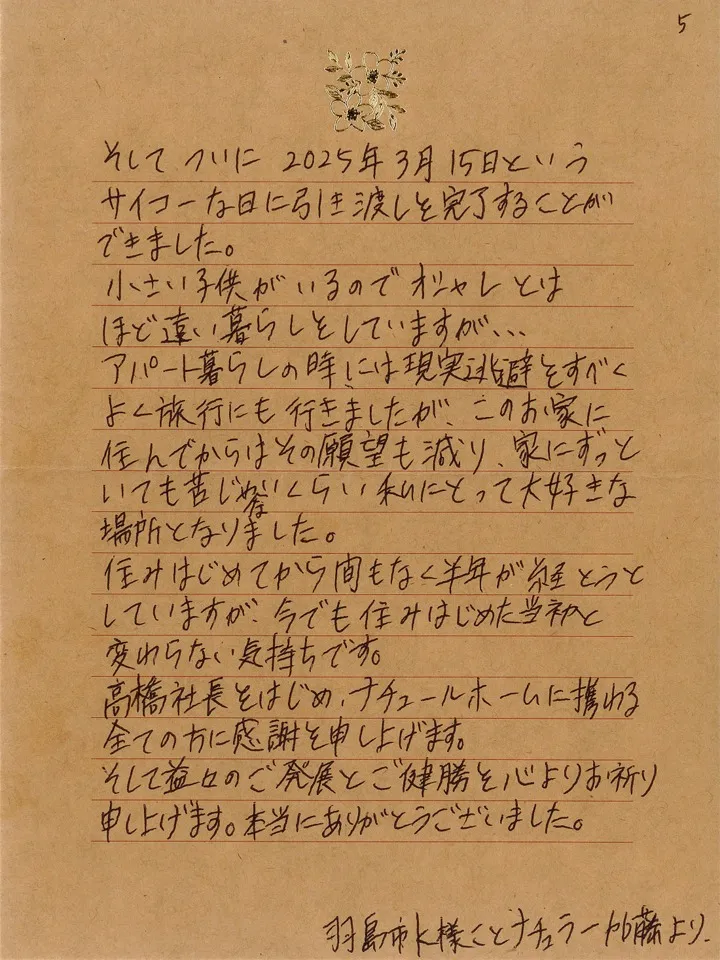 5
そして ついに 2025年3月15日という
サイコーな日に引き渡しを完了することが
できました。
小さい子供がいるのでオシャレとは
ほど遠い暮らしをしていますが、、、
アパート暮らしの時には現実逃避をすべく
よく旅行にも行きましたが、このお家に
住んでからはその願望も減り、家にずっと
いても苦じゃないくらい私にとって大好きな
場所となりました。
住みはじめてから間もなく半年が経とうと
していますが、今でも住みはじめた当初と
変わらない気持ちです。
高橋社長をはじめ、ナチュールホームに携わる
全ての方に感謝を申し上げます。
そして益々のご発展とご健勝を心よりお祈り
申し上げます。本当にありがとうございました。
羽島市K様ことナチュラー加藤より.